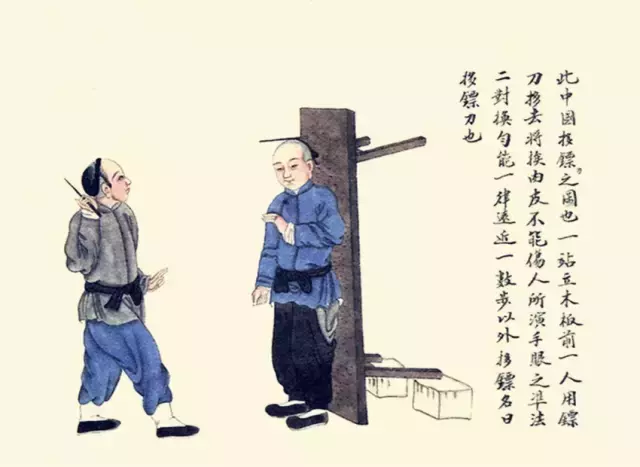 此中国抬鏢之圖也一站立木板前一人用鏢
刀扔去將挨由友不能傷人所演手眼之準法
二對換勾能一律遠近一数步以外扔鏢名曰
扔鏢刀也